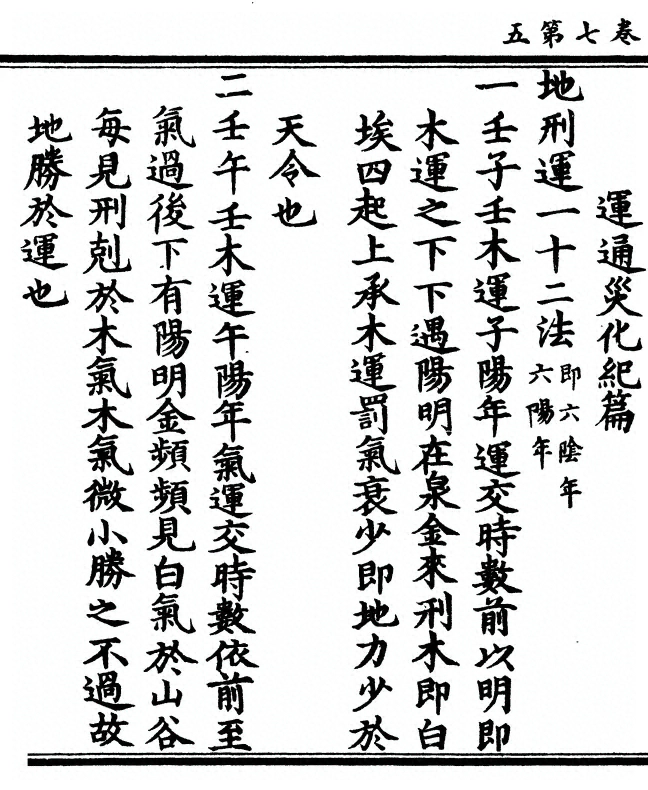 卷七第五
運通災化紀篇
地刑運一十二法即六陰年六陽年
一壬子壬木運子陽年運交時數前以明即
木運之下下遇陽明在泉金來刑木即白
埃四起上承木運罰氣衰少即地力少於
天令也
二壬午壬木運午陽年氣運交時數依前至
氣過後下有陽明金頻頻見白氣於山谷
每見刑剋於木氣木氣微小勝之不過故
地勝於運也